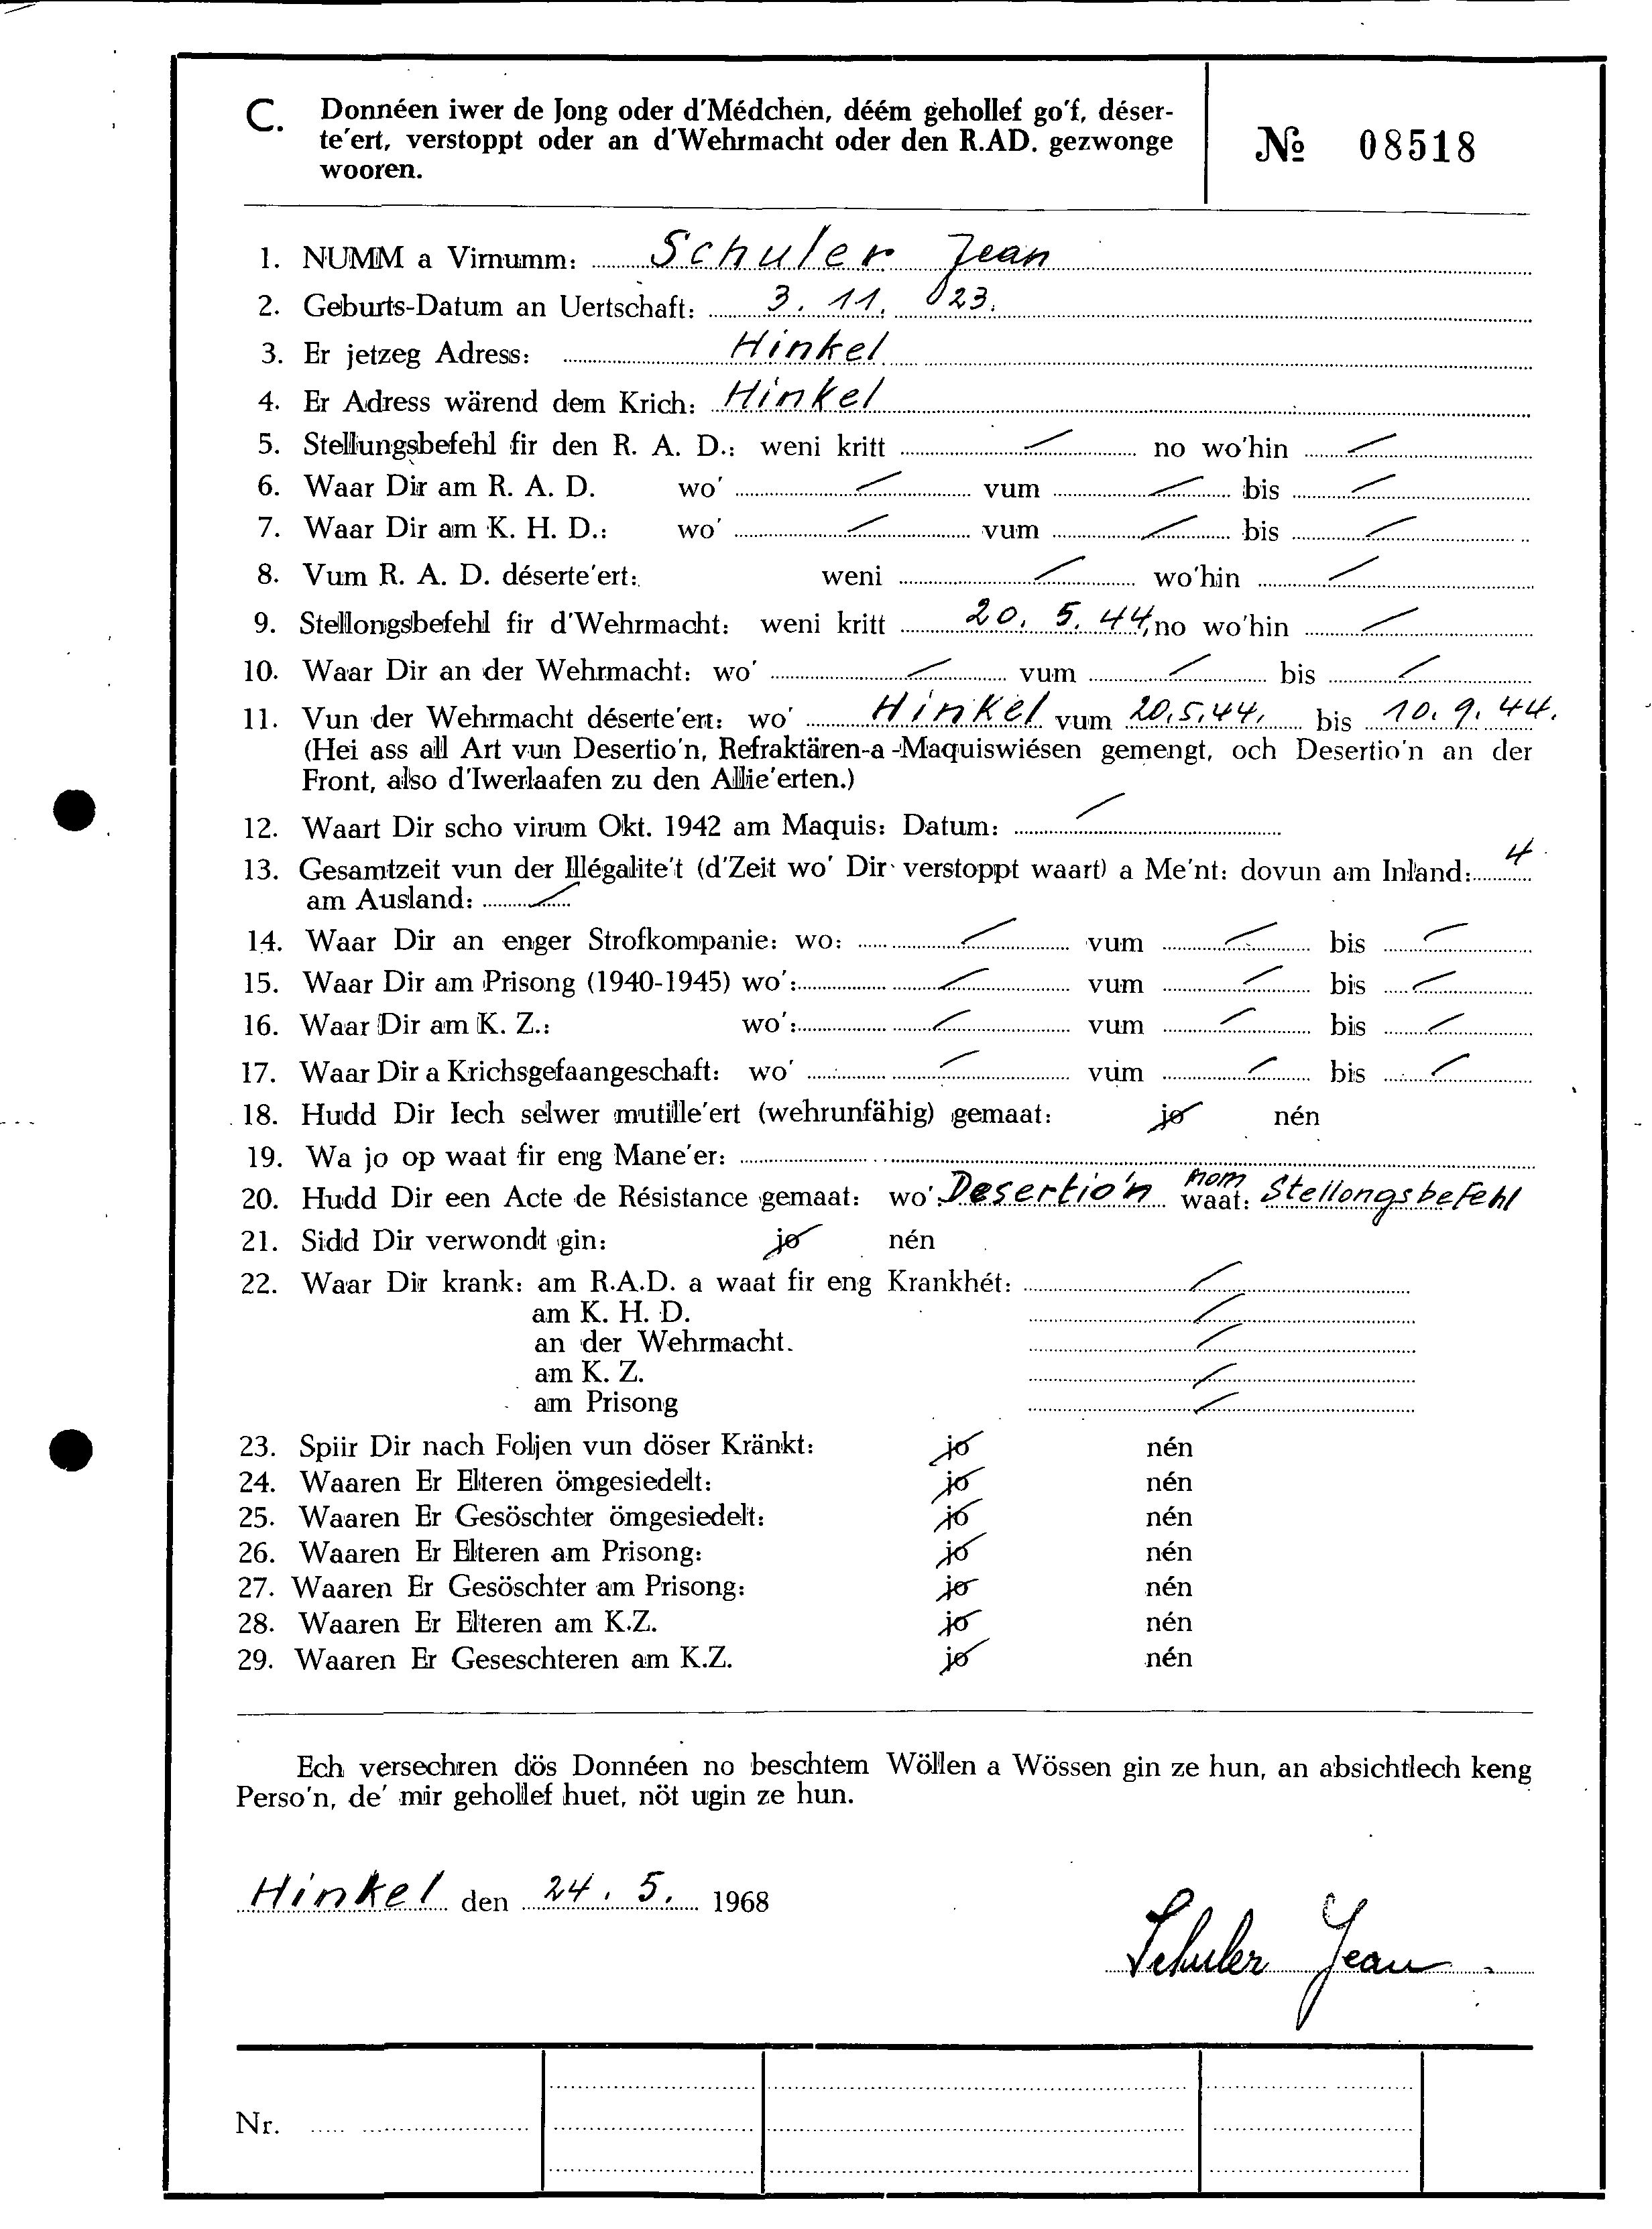 C. Donnéen iwer de Jong oder d'Médchen, déém gehollef go'f, déser-
te'ert, verstoppt oder an d'Wehrmacht oder den R.AD. gezwonge
wooren.
№ 08518
1. NUMM a Virnumm: Schuler Jean
2. Geburts-Datum an Uertschaft: 3. 11. 23.
3. Er jetzeg Adress: Hinkel
4. Er Adress wärend dem Krich: Hinkel
5. Stellungsbefehl fir den R. A. D.: weni kritt — no wo'hin —
6. Waar Dir am R. A. D. wo' — vum — bis —
7. Waar Dir am K. H. D.: wo' — vum — bis —
8. Vum R. A. D. déserte'ert: weni — wo'hin —
9. Stellongsbefehl fir d'Wehrmacht: weni kritt 20. 5. 44, no wo'hin —
10. Waar Dir an der Wehrmacht: wo' — vum — bis —
11. Vun der Wehrmacht déserte'ert: wo' Hinkel vum 20.5.44. bis 10. 9. 44.
(Hei ass all Art vun Desertio'n, Refraktären-a -Maquiswiésen gemengt, och Desertio'n an der
Front, also d'Iwerlaafen zu den Allie'erten.)
12. Waart Dir scho virum Okt. 1942 am Maquis: Datum: —
13. Gesamtzeit vun der Illégalite't (d'Zeit wo' Dir verstoppt waart) a Me'nt: dovun am Inland: 4
am Ausland: —
14. Waar Dir an enger Strofkompanie: wo: — vum — bis —
15. Waar Dir am Prisong (1940-1945) wo': — vum — bis —
16. Waar Dir am K. Z.: wo': — vum — bis —
17. Waar Dir a Krichsgefaangeschaft: wo' — vum — bis —
18. Hudd Dir Iech selwer mutille'ert (wehrunfähig) gemaat: jo nén
19. Wa jo op waat fir eng Mane'er:
20. Hudd Dir een Acte de Résistance gemaat: wo': Desertio'n nom waat: Stellongsbefehl
21. Sidd Dir verwondt gin: jo nén
22. Waar Dir krank: am R.A.D. a waat fir eng Krankhét: —
am K. H. D. —
an der Wehrmacht. —
am K. Z. —
am Prisong —
23. Spiir Dir nach Foljen vun döser Kränkt: jo nén
24. Waaren Er Elteren ömgesiedelt: jo nén
25. Waaren Er Gesöschter ömgesiedelt: jo nén
26. Waaren Er Elteren am Prisong: jo nén
27. Waaren Er Gesöschter am Prisong: jo nén
28. Waaren Er Elteren am K.Z. jo nén
29. Waaren Er Geseschteren am K.Z. jo nén
Ech versechren dös Donnéen no beschtem Wöllen a Wössen gin ze hun, an absichtlech keng
Perso'n, de' mir gehollef huet, nöt ugin ze hun.
Hinkel den 24. 5. 1968
Schuler Jean
Nr.